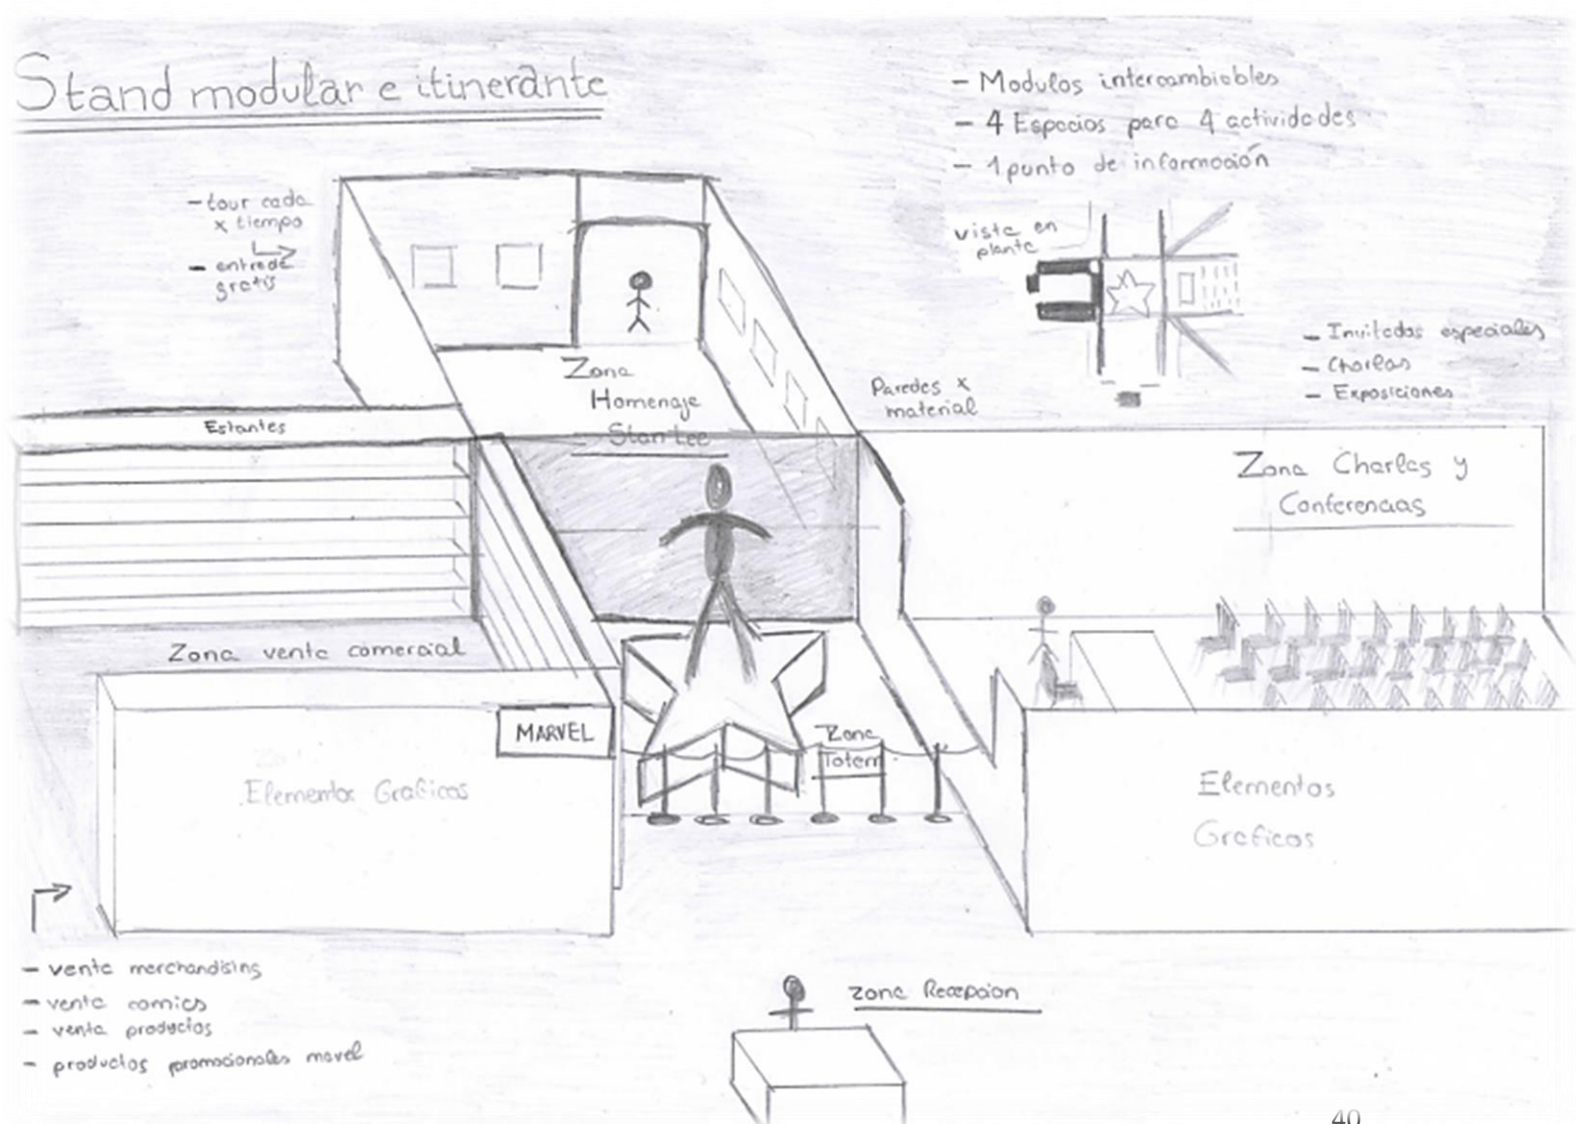 Stand modular e itinerante
- Modulos intercambiables
- 4 Espacios para 4 actividades
- 1 punto de información
- tour cada
x tiempo
- entrada
gratis
vista en
planta
- Invitados especiales
- Charlas
- Exposiciones
Paredes x
material
Zona
Homenaje
Stan Lee
Estantes
Zona Charlas y
Conferencias
Zona venta comercial
MARVEL
Zona
Totem
Elementos Graficos
Elementos
Graficos
- venta merchandising
- venta comics
- venta productos
- productos promocionales mavel
zona Recepcion
40